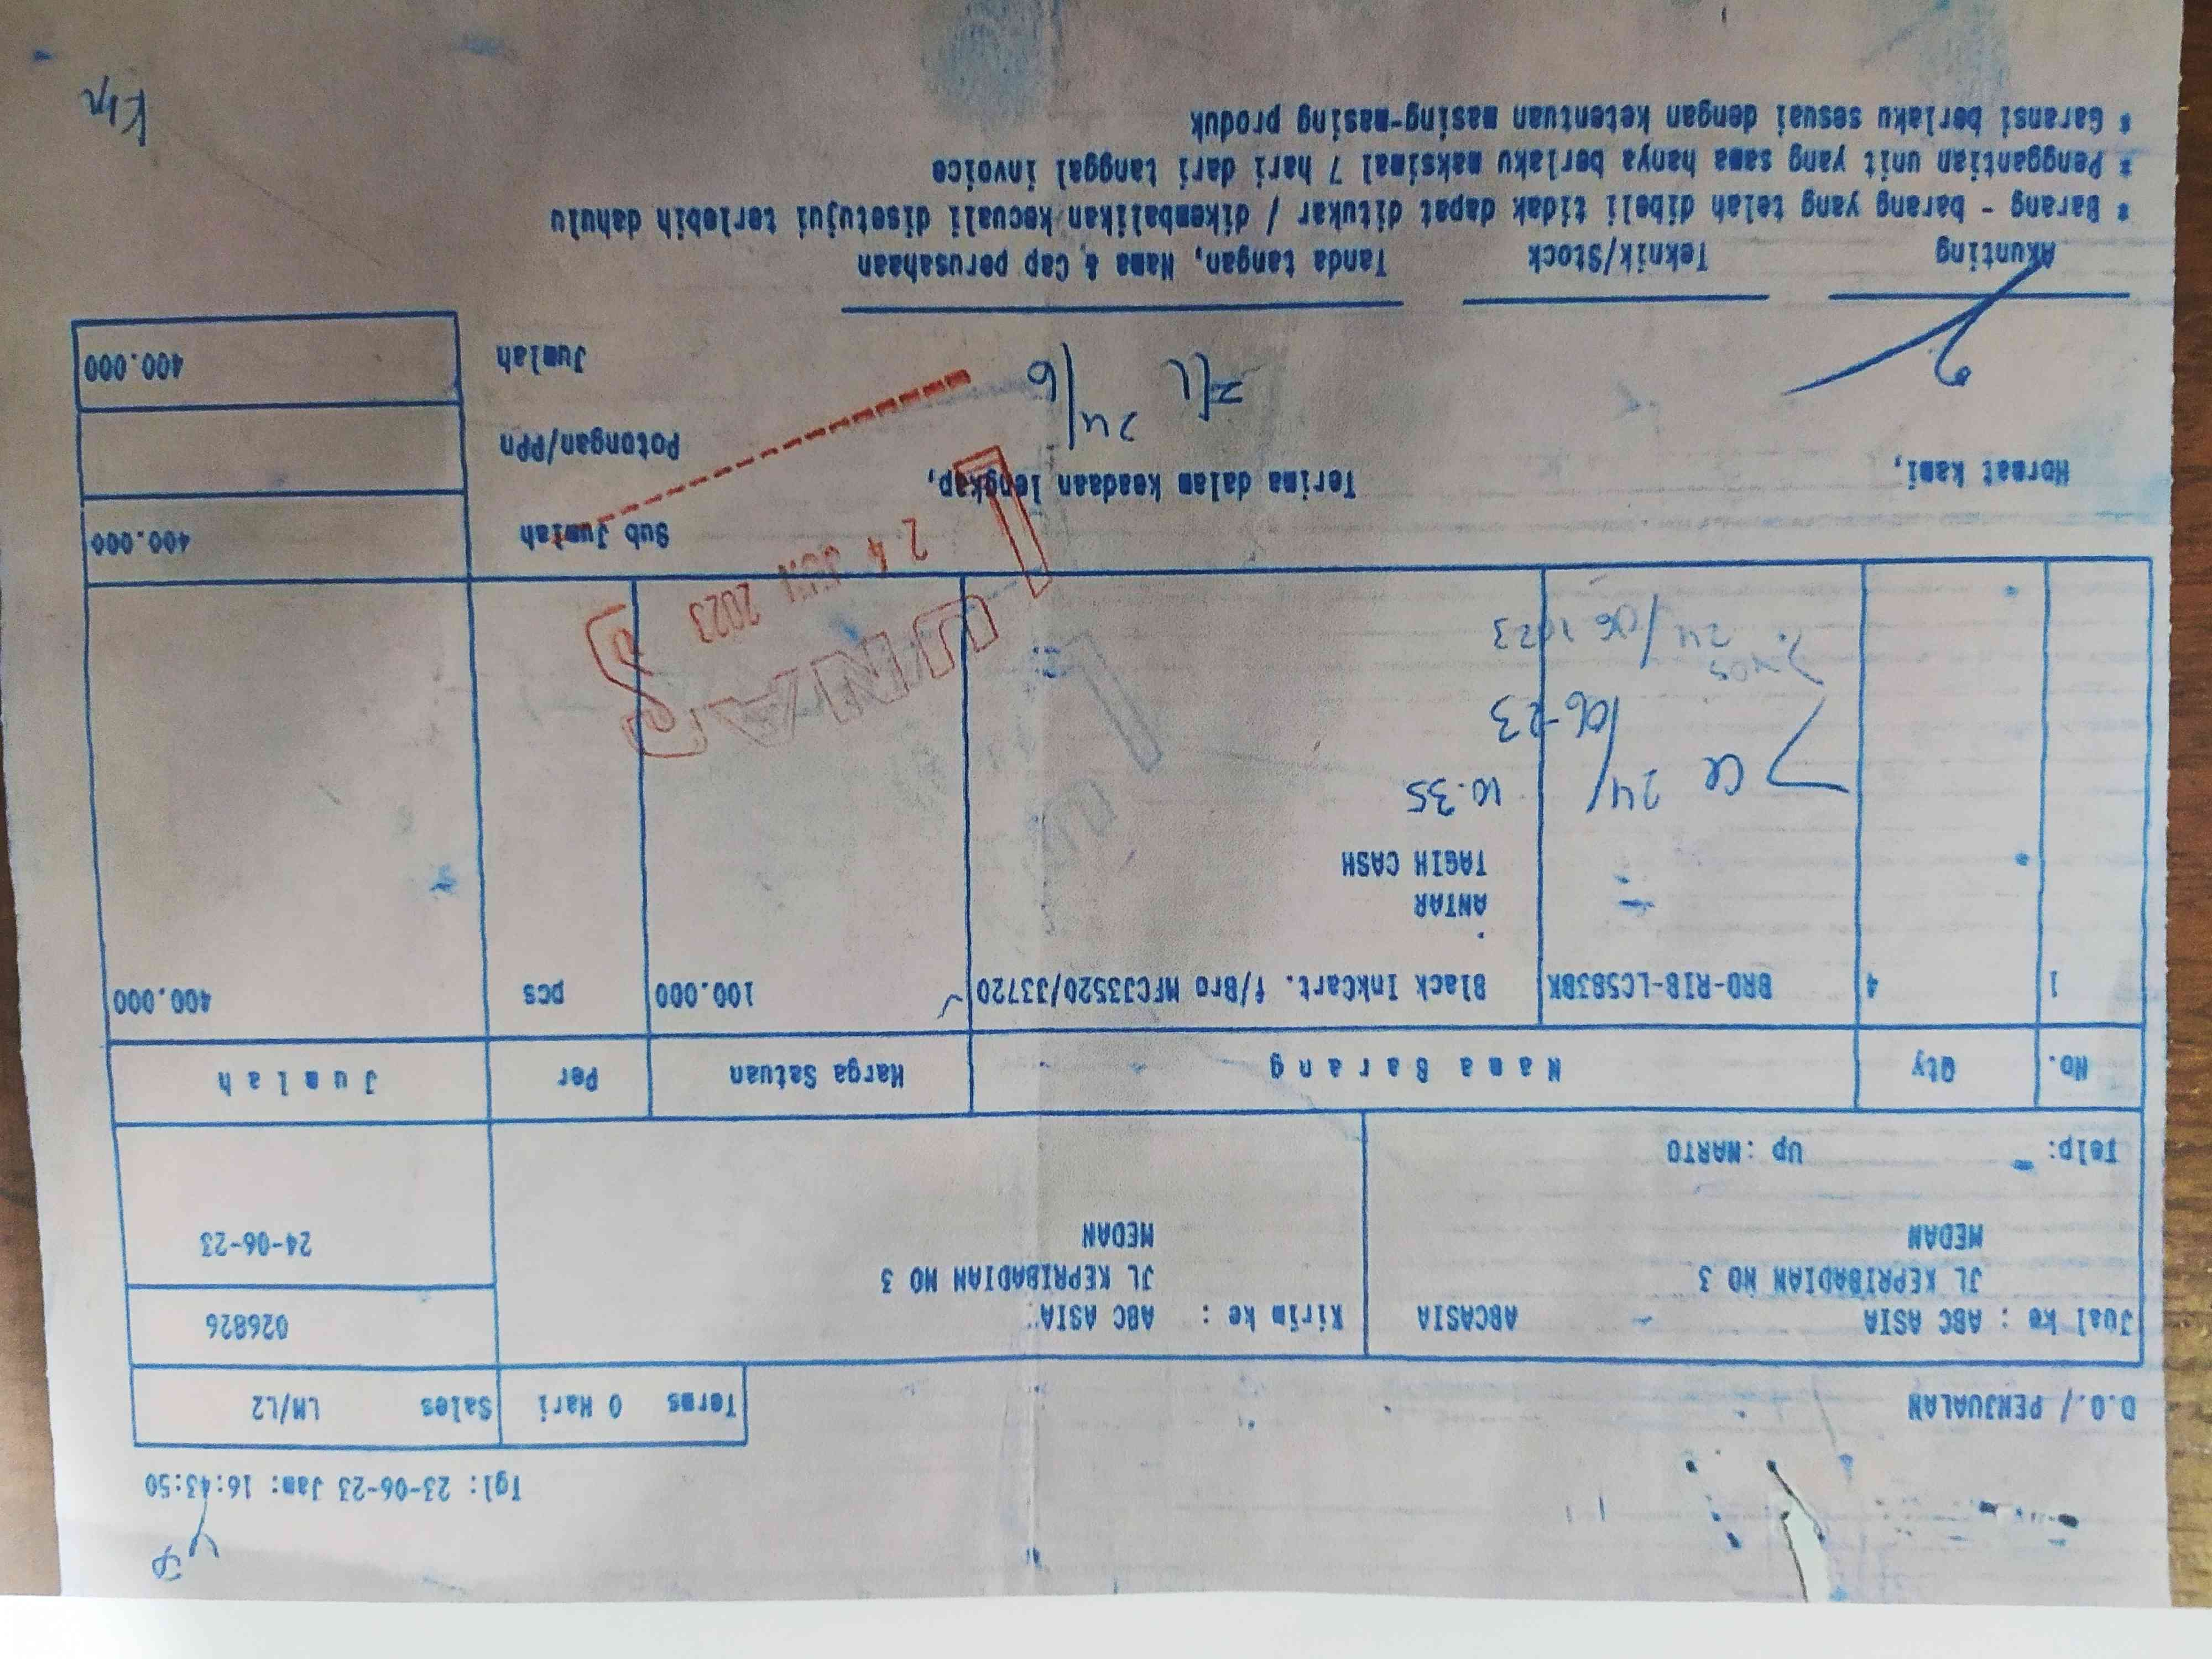 Tgl: 23-06-23 Jam: 16:43:50
D.O./ PENJUALAN Terms 0 Hari Sales LM/L2
Jual ke : ABC ASIA ABCASIA Kirim ke : ABC ASIA 026826
JL KEPRIBADIAN NO 3 JL KEPRIBADIAN NO 3
MEDAN MEDAN 24-06-23
Telp: Up : NARTO
No. Qty Nama Barang Harga Satuan Per Jumlah
1 4 BRO-RIB-LC583BK Black InkCart. f/Bro MFCJ3520/J3720 100.000 pcs 400.000
ANTAR
TAGIH CASH
24/06-23 10.35
24/06 2023
LUNAS
24 JUN 2023
Sub Jumlah 400.000
Hormat kami, Terima dalam keadaan lengkap,
Potongan/PPn
24/6
Jumlah 400.000
Akunting Teknik/Stock Tanda tangan, Nama & Cap perusahaan
* Barang - barang yang telah dibeli tidak dapat ditukar / dikembalikan kecuali disetujui terlebih dahulu
* Penggantian unit yang sama hanya berlaku maksimal 7 hari dari tanggal invoice
* Garansi berlaku sesuai dengan ketentuan masing-masing produk